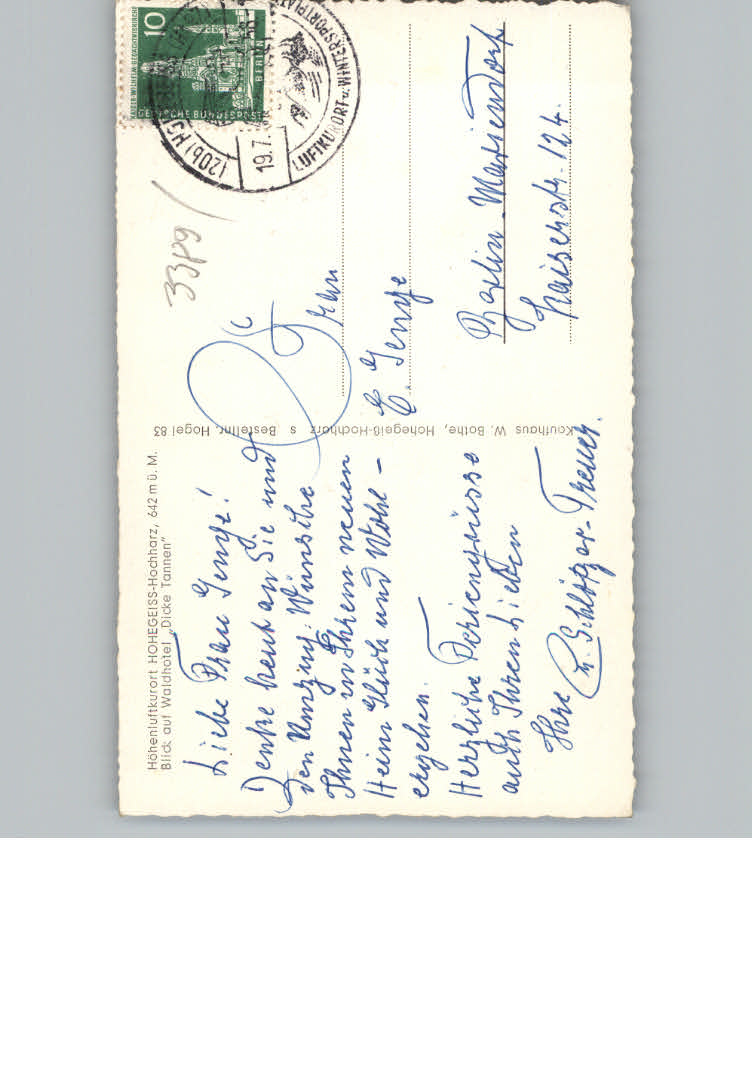 Höhenluftkurort HOHEGEISS-Hochharz, 642 m ü. M.
Blick auf Waldhotel „Dicke Tannen"
Liebe Frau Genge!
Denke heut an Sie und
den Umzug. Wünsche
Ihnen im Ihrem neuen
Heim Glück und Wohl-
ergehen.
Herzliche Feriengrüsse
auch Ihren Lieben
Ihre
Kaufhaus W. Bothe, Hohegeiß-Hochharz s Bestellnr. Hogei 83
10
KAISER-WILHELM-GEDÄCHTNISKIRCHE
BERLIN
DEUTSCHE BUNDESPOST
(20b) HO
19.7.
LUFTKURORT u. WINTERSPORTPLATZ
3389
Frau
E. Genge
Berlin-Mariendorf
Kaiserstr. 124.